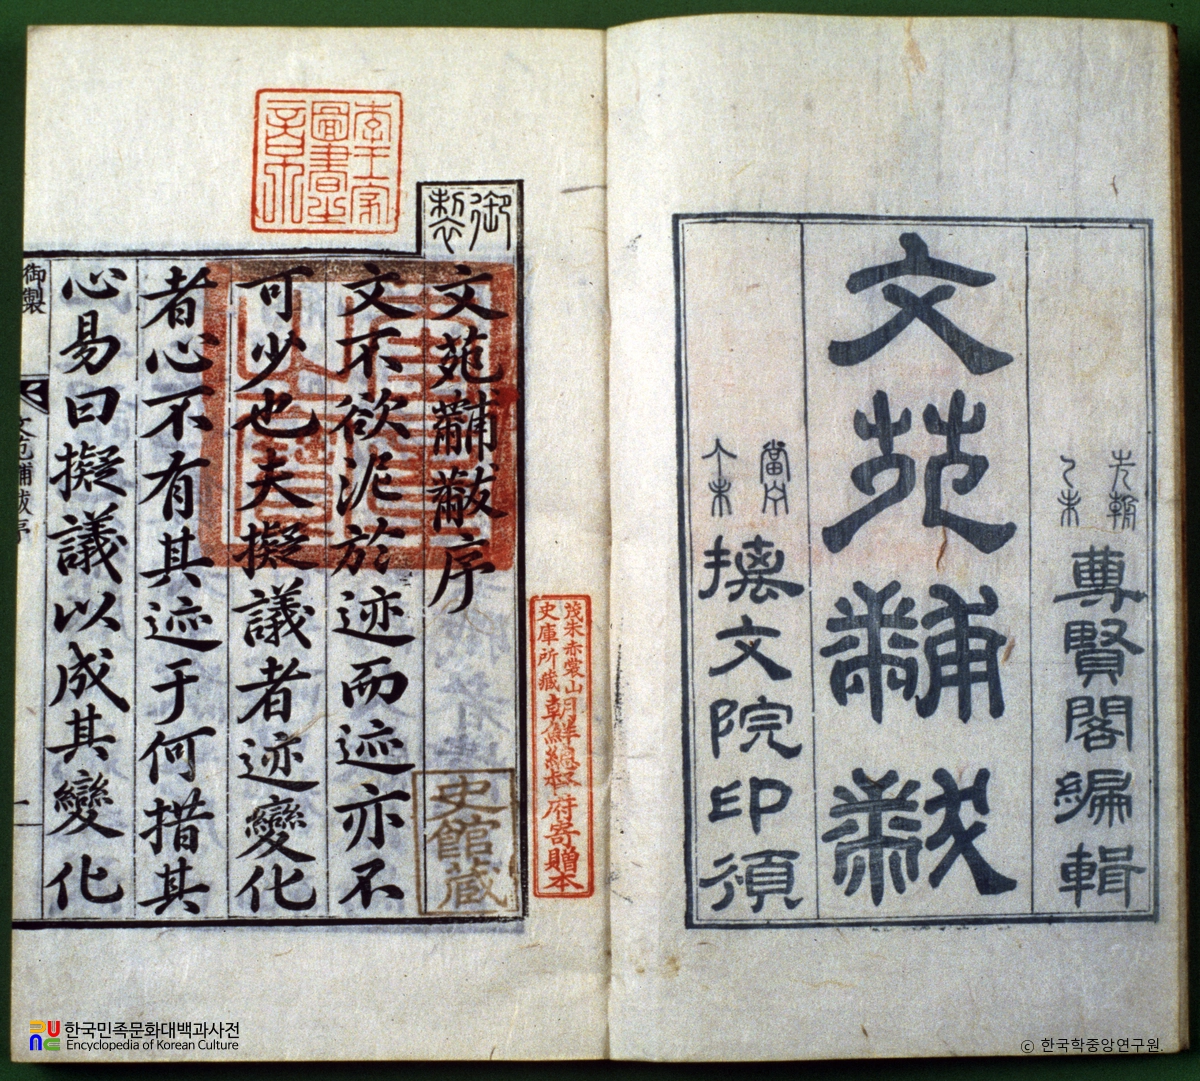 先朝
乙未
尊賢閣編輯
文苑黼黻
當宁
丁未
摛文院印頒
茂朱赤裳山
史庫所藏
朝鮮總督府寄贈本
李王家
圖書之
章
御製
文苑黼黻序
史館藏
文不欲泥於迹而迹亦不
可少也夫擬議者迹變化
者心不有其迹于何措其
心易曰擬議以成其變化
御製
文苑黼黻序
一
한국민족문화대백과사전
Encyclopedia of Korean Culture
ⓒ 한국학중앙연구원.